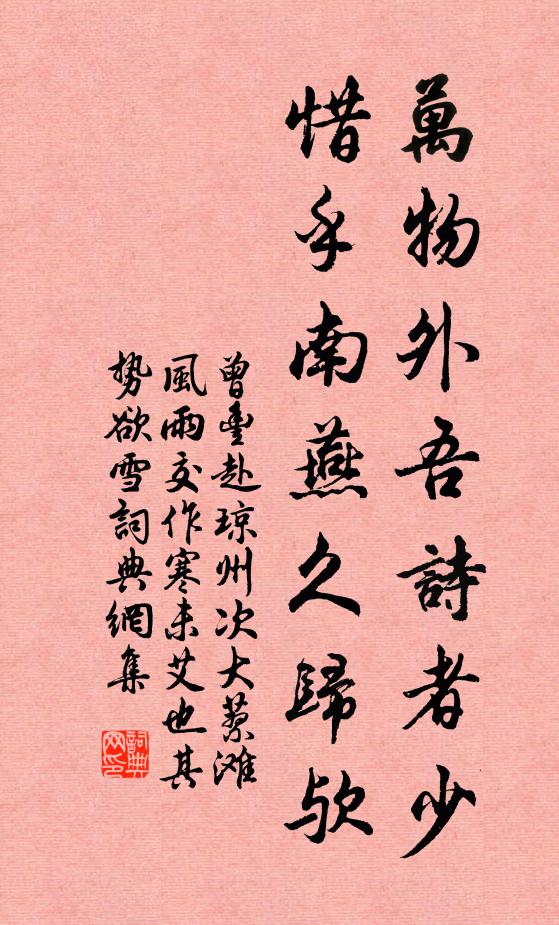 萬物外吾詩者少
惜乎南燕久歸欤
曾豊赴琼州次大蓼滩
風雨交作寒未艾也其
势欲雪詞典網集
詞典
网印